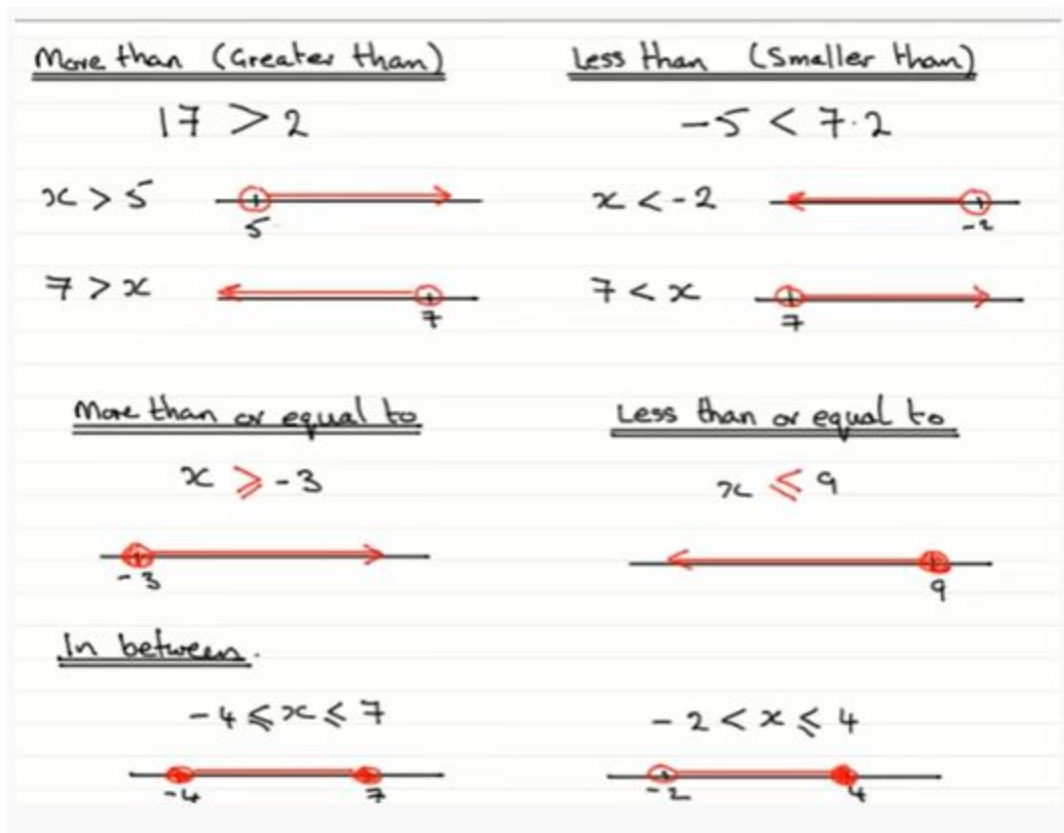 More than (Greater than)
17 > 2
x > 5
5
7 > x
7
Less than (Smaller than)
-5 < 7.2
x < -2
-2
7 < x
7
More than or equal to
x ⩾ -3
-3
Less than or equal to
x ⩽ 9
9
In between.
-4 ⩽ x ⩽ 7
-4 7
-2 < x ⩽ 4
-2 4